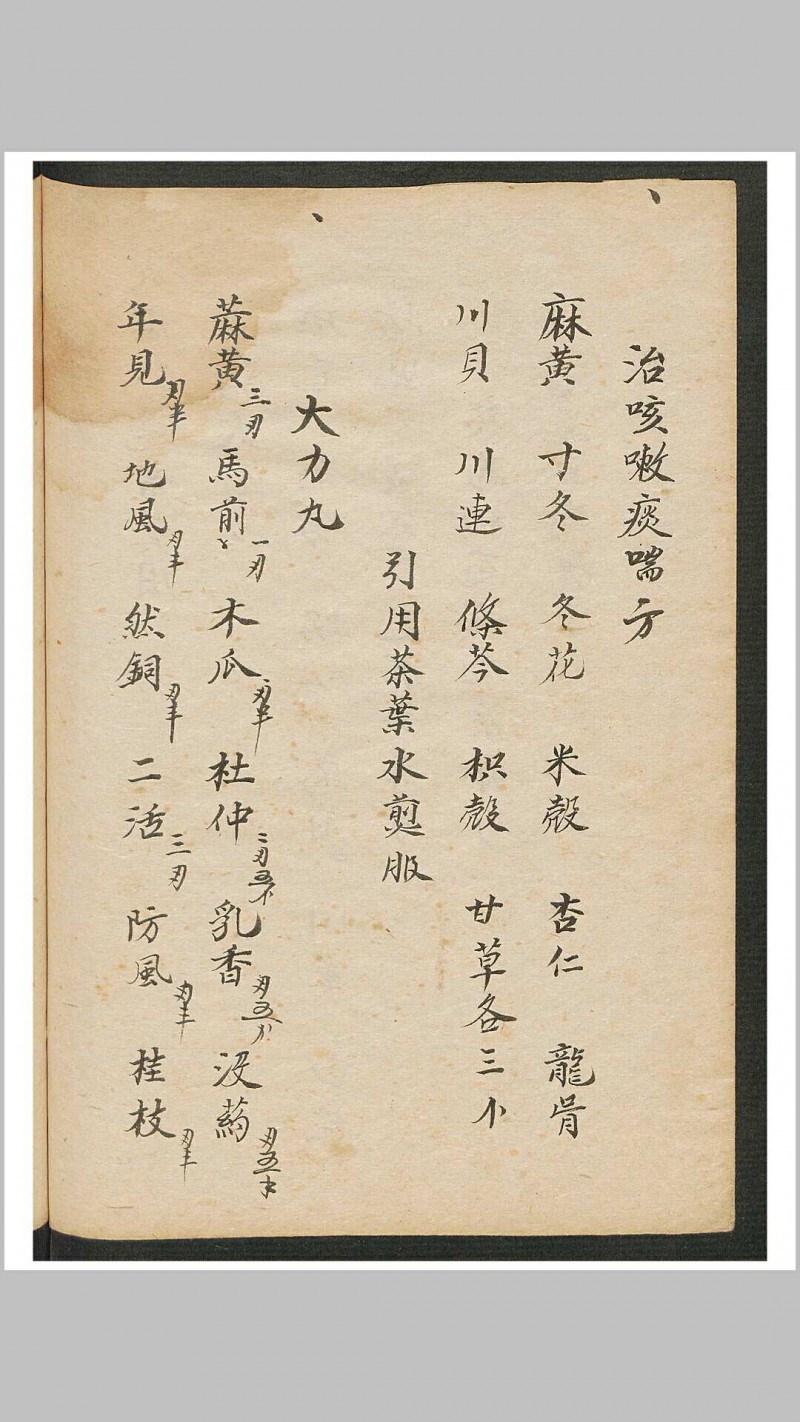 治咳嗽痰喘方
麻黄 寸冬 冬花 米殼 杏仁 龍骨
川貝 川連 條芩 枳殼 甘草各三
引用茶葉水煎服
大力丸
蔴黄三刃 馬前一刃 木瓜 杜仲二刃五 乳香刃五 没葯刃五
年見刃半 地風刃半 然銅刃半 二活三刃 防風刃半 桂枝刃半